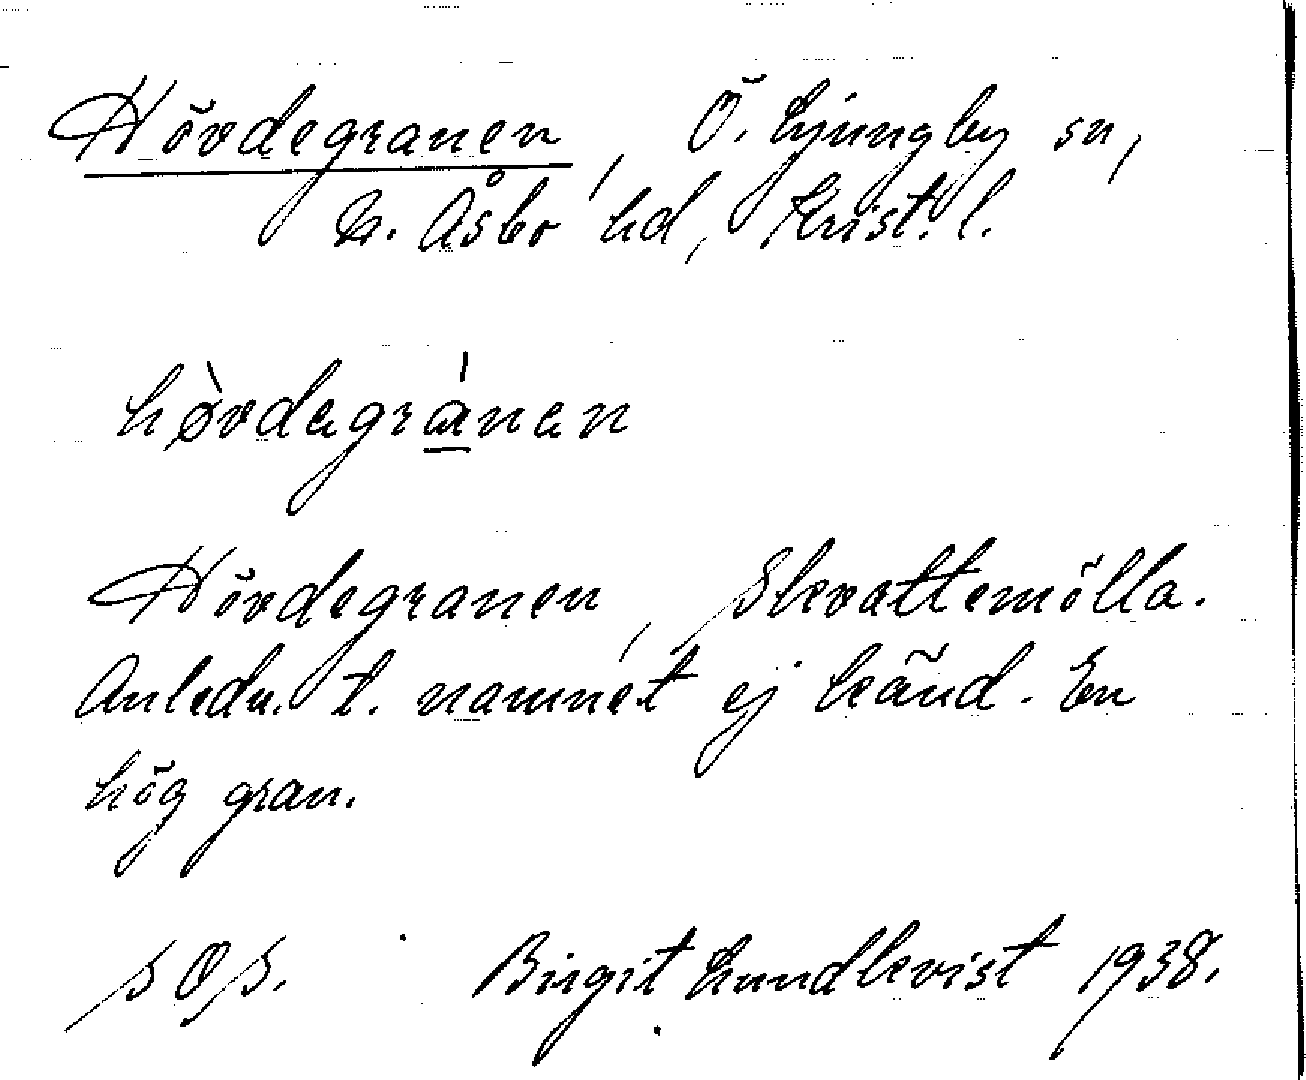 Hövdegranen, Ö. Ljungby sn,
N. Åsbo hd, Krist. l.
hø̀vdegrá̲nen
Hövdegranen, Skvattemölla.
Anledn. t. namnet ej känd. En
hög gran.
SOS. Birgit Lundkvist 1938.